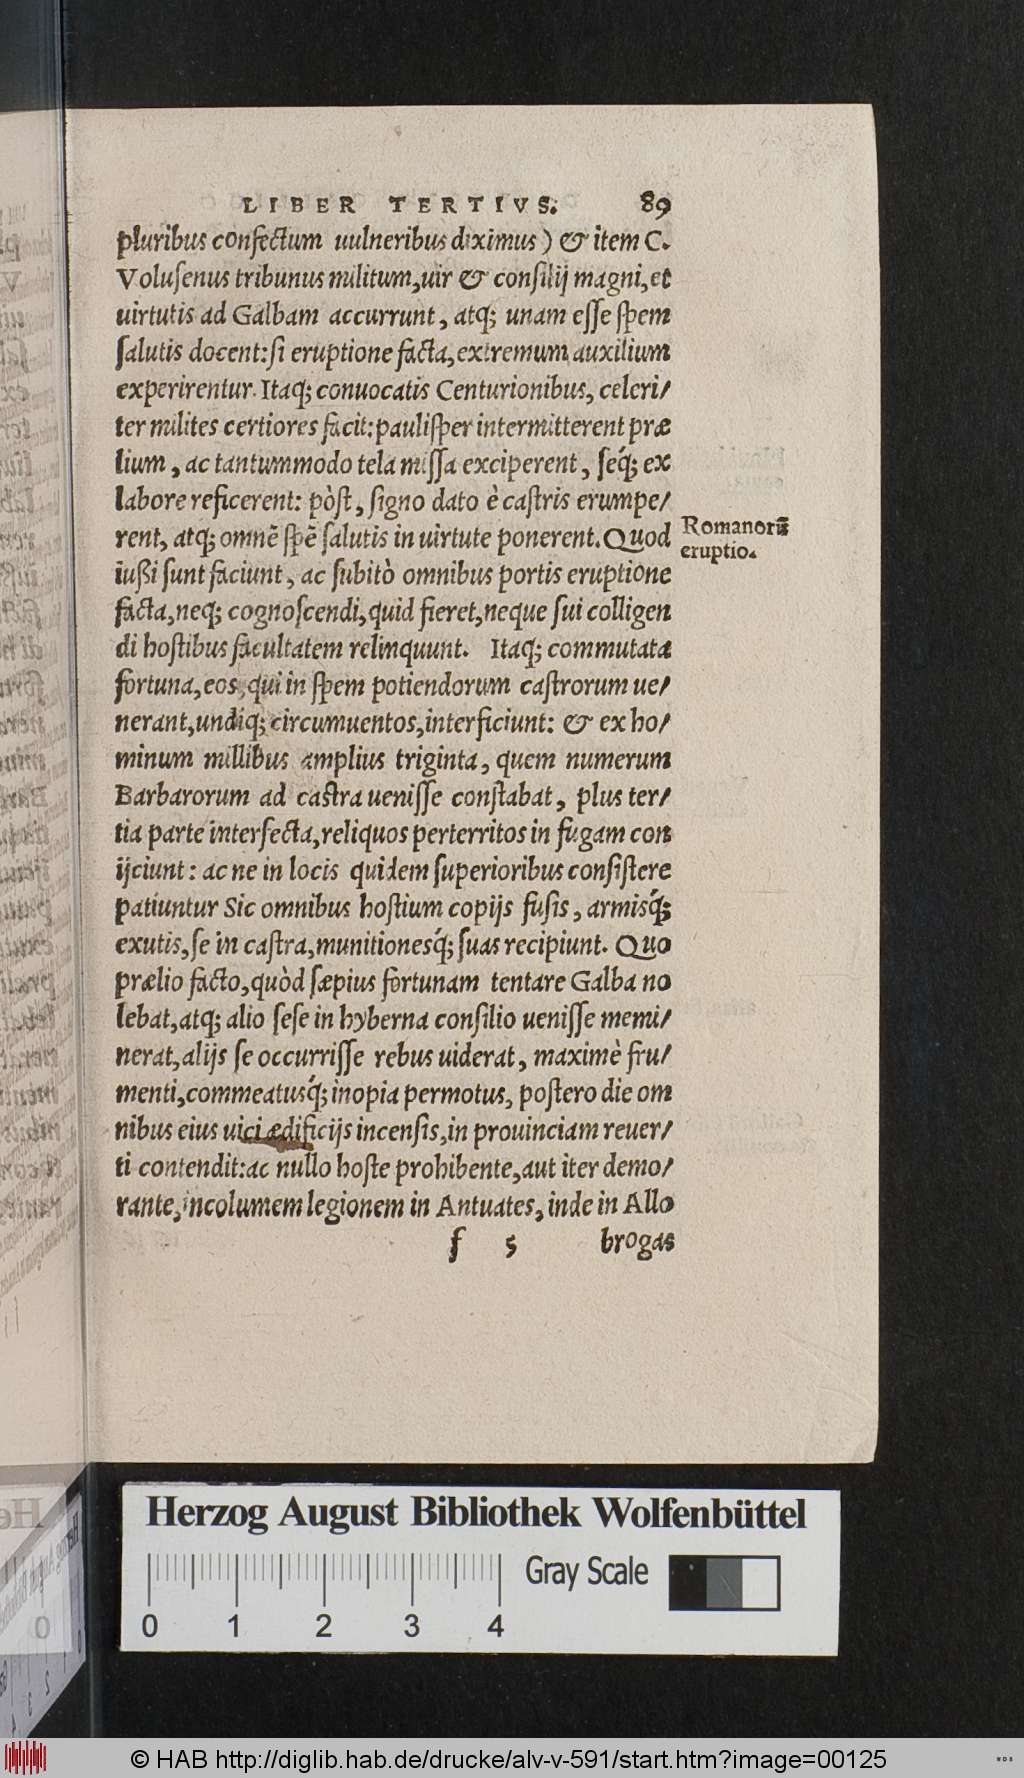 LIBER TERTIVS. 89
pluribus confectum uulneribus diximus) & item C.
Voluſenus tribunus militum, uir & conſilij magni, et
uirtutis ad Galbam accurrunt, atq; unam eſſe ſpem
ſalutis docent: ſi eruptione facta, extremum auxilium
experirentur. Itaq; conuocatis Centurionibus, celeri/
ter milites certiores facit: pauliſper intermitterent præ
lium, ac tantummodo tela miſſa exciperent, ſeq́; ex
labore reficerent: pòſt, ſigno dato è caſtris erumpe/
rent, atq; omnẽ ſpẽ ſalutis in uirtute ponerent. Quod
Romanorũ
eruptio.
iußi ſunt faciunt, ac ſubitò omnibus portis eruptione
facta, neq; cognoſcendi, quid fieret, neque ſui colligen
di hoſtibus facultatem relinquunt. Itaq; commutata
fortuna, eos, qui in ſpem potiendorum caſtrorum ue/
nerant, undiq; circumuentos, interficiunt: & ex ho/
minum millibus amplius triginta, quem numerum
Barbarorum ad caſtra ueniſſe conſtabat, plus ter/
tia parte interfecta, reliquos perterritos in fugam con
ijciunt: ac ne in locis quidem ſuperioribus conſiſtere
patiuntur Sic omnibus hoſtium copijs fuſis, armisq́;
exutis, ſe in caſtra, munitionesq́; ſuas recipiunt. Quo
prælio facto, quòd ſæpius fortunam tentare Galba no
lebat, atq; alio ſeſe in hyberna conſilio ueniſſe memi/
nerat, alijs ſe occurriſſe rebus uiderat, maximè fru/
menti, commeatusq́; inopia permotus, poſtero die om
nibus eius uici ædificijs incenſis, in prouinciam reuer/
ti contendit: ac nullo hoſte prohibente, aut iter demo/
rante, incolumem legionem in Antuates, inde in Allo
f 5 brogas
Herzog August Bibliothek Wolfenbüttel
Gray Scale
0 1 2 3 4
© HAB http://diglib.hab.de/drucke/alv-v-591/start.htm?image=00125